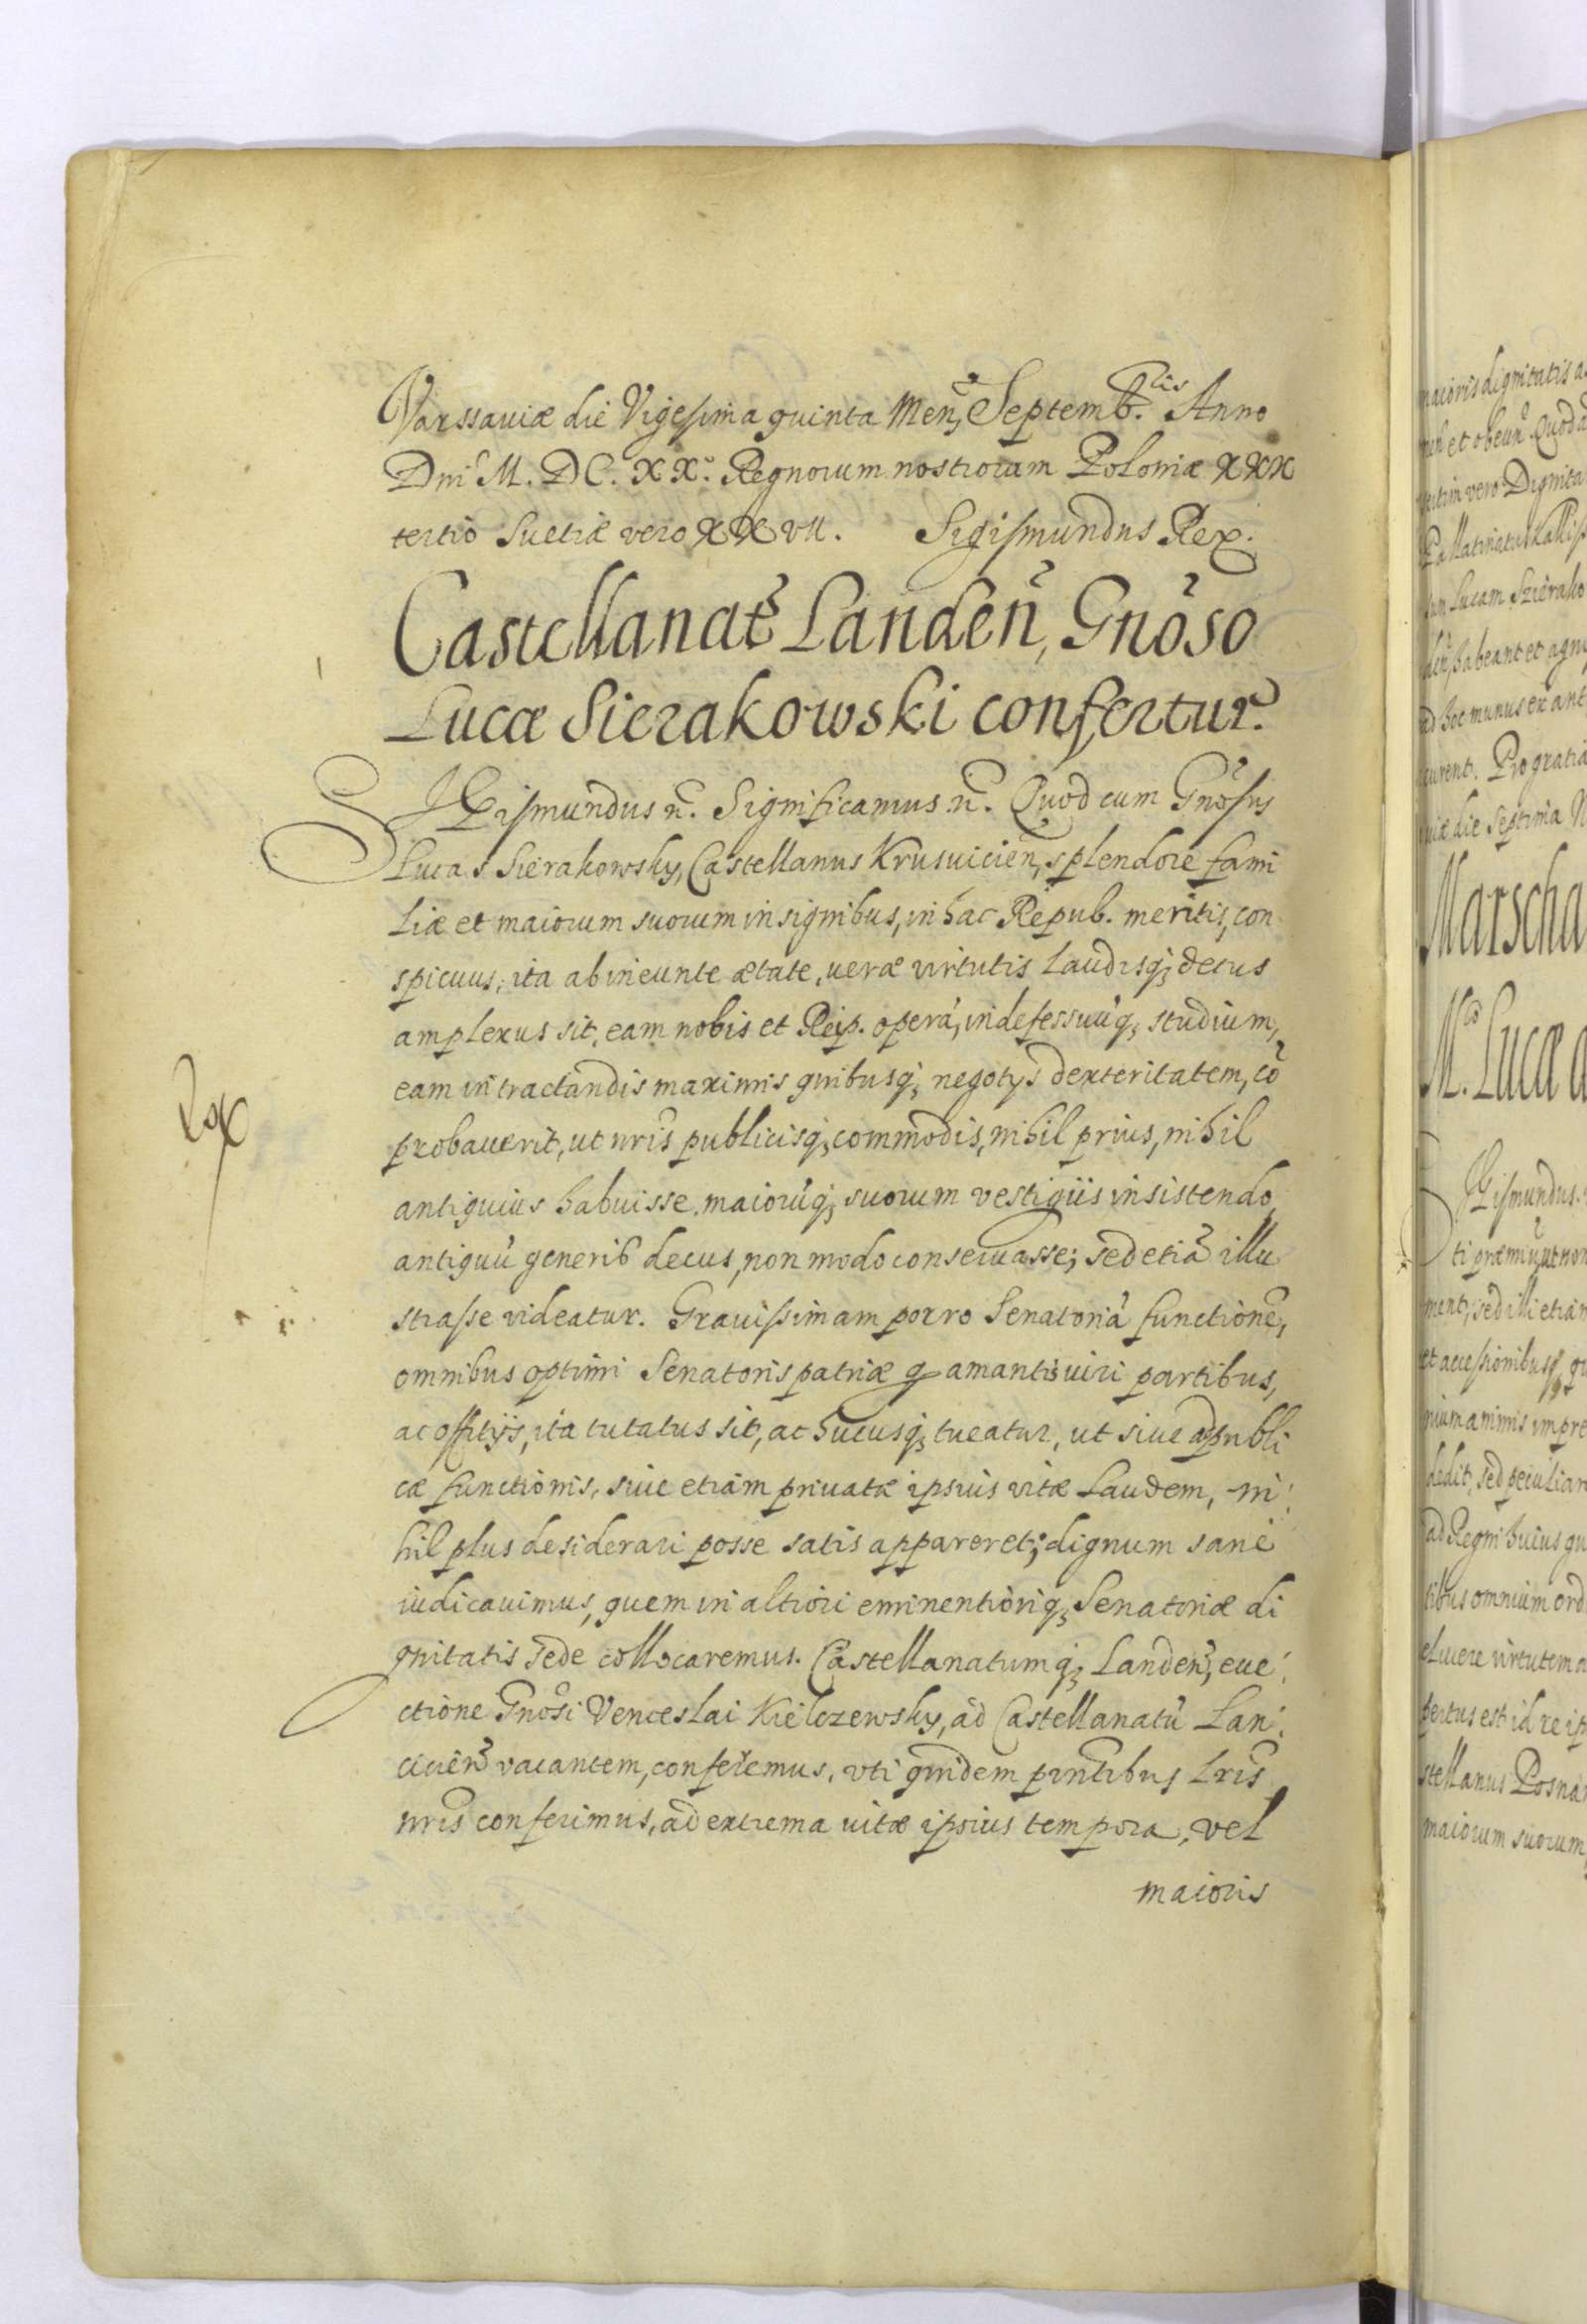 Varssauiæ die Vigesima quinta Men̄, Septemb.lis Anno
Dni M. DC. XX.° Regnorum nostrorum Poloniæ XXX
tertio Suetiæ vero XX VII. Sigismundus Rex.
Castellanat̃ Landen̄, Gnoso
Lucæ Sierakowski confertur.
SIGismundus n̄. Significamus n̄. Quod cum Gnosus
Lucas Sierakowsky, Castellanus Krusuicien̄, splendore fami
liæ et maiorum suorum insignibus, in hac Repub. meritis, con
spicuus, ita ab ineunte ætate, ueræ virtutis laudisq; decus
amplexus sit, eam nobis et Reip. operā, indefessuūq; studium,
eam in tractandis maximis quibusq; negotys dexteritatem, cō
probauerit, ut nris publicisq; commodis, nihil prius, nihil
antiquius habuisse, maiorūq; suorum vestigiis insistendo,
antiquū generis decus, non modo conseruasse; sed etiā illu
strasse videatur. Grauissimam porro Senatoriā functionē,
omnibus optimi Senatoris patriæ q amantis uiri partibus,
ac offitijs, ita tutatus sit, ac hucusq; tueatur, ut siue ad publi
cæ functionis, siue etiam priuatæ ipsius vitæ laudem, ni
hil plus desiderari posse satis appareret; dignum sanè
iudicauimus, quem in altiori eminentioriq; Senatoriæ di
gnitatis sede collocaremus. Castellanatumq; Landen̄, eue
ctione Gnosi Venceslai Kielczewsky, ad Castellanatū Lan
cicien̄ vacantem, conferemus, vti quidem pn̄tibus lris
nris conferimus, ad extrema uitæ ipsius tempora, vel
maioris
maioris dignitatis a
et obeun̄. Quod a
vero Dignita
Pallatinatus Kalliss
Lucam Sziērako
habeant et agn
ad hoc munus ex ant
curent. Pro gratia
die Septima N
Marscha
M.co Lucæ a
SIGismundus
ti præmiū, ut non
ment, sed illi etiam
et accessionibusq; qu
animis impre
dedit, sed peculiar
ad Regni huius qu
tibus omnium ord
elucere virtutem a
pertus est id re ip
stellanus Posna
maiorum suorum